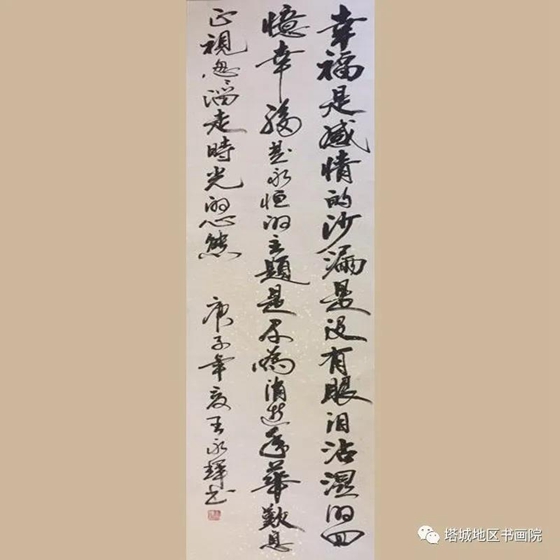 幸福是感情的沙漏是没有眼泪沾濕的回
憶幸福是永恒的主題是不為消逝年華歎息
正視忽々淌走時光的心態
庚子年夏王永輝书
塔城地区书画院